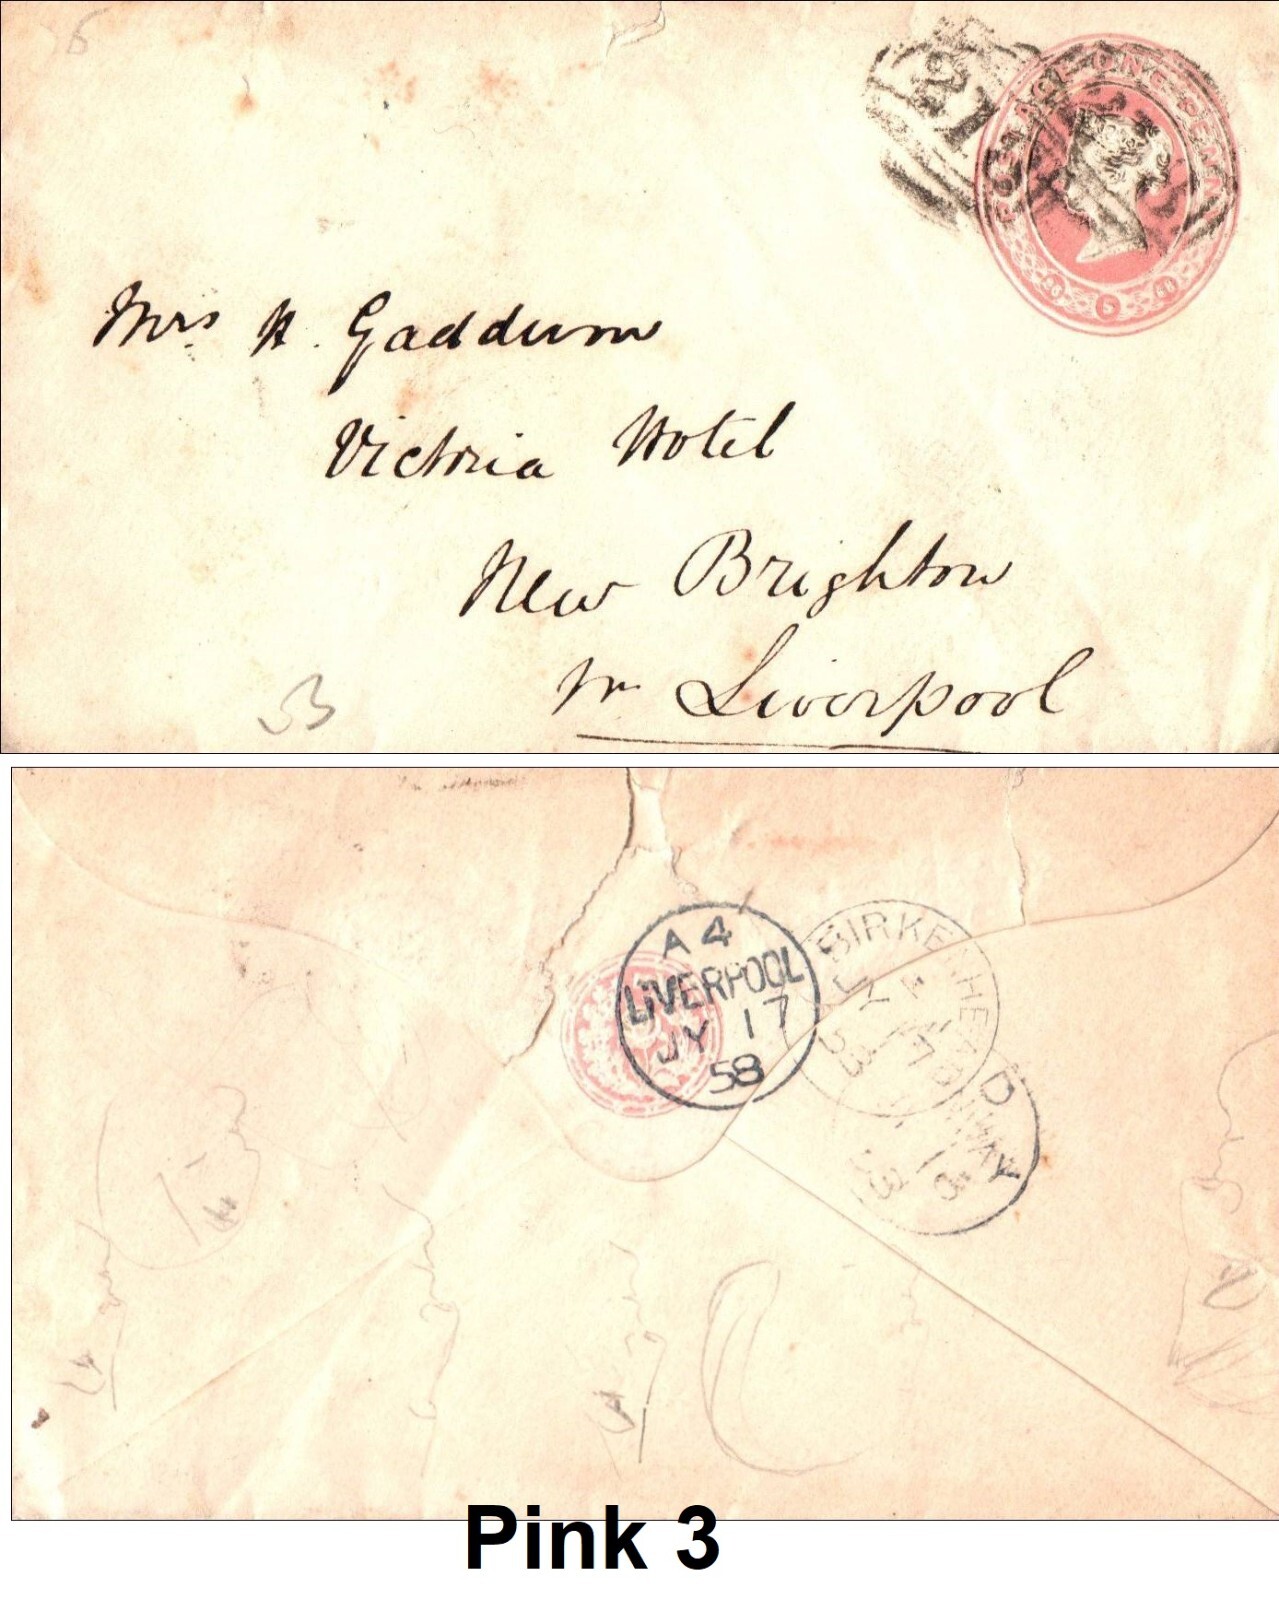 POSTAGE ONE PENNY
Mrs H. Gaddum
Victoria Hotel
New Brighton
nr Liverpool
A 4
LIVERPOOL
JY 17
58
BIRKENHEAD
JY 17
58
Pink 3